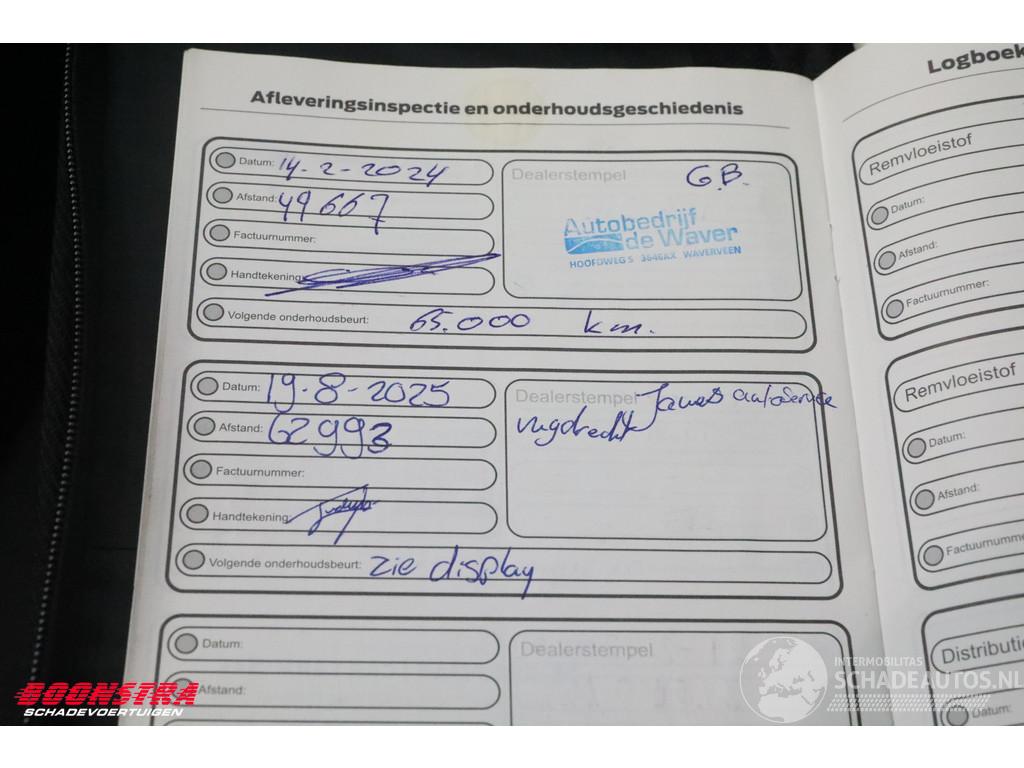 Afleveringsinspectie en onderhoudsgeschiedenis
Datum: 14-2-2024
Afstand: 49667
Factuurnummer:
Handtekening:
Volgende onderhoudsbeurt: 65.000 km.
Dealerstempel G.B.
Autobedrijf
de Waver
HOOFDWEG 5 3646AX WAVERVEEN
Datum: 19-8-2025
Afstand: 62993
Factuurnummer:
Handtekening:
Volgende onderhoudsbeurt: zie display
Dealerstempel autoservice
Datum:
Afstand:
Dealerstempel
Logboek
Remvloeistof
Datum:
Afstand:
Factuurnummer:
Remvloeistof
Datum:
Afstand:
Factuurnumme
Distributi
Datum:
BOONSTRA
SCHADEVOERTUIGEN
INTERMOBILITAS
SCHADEAUTOS.NL